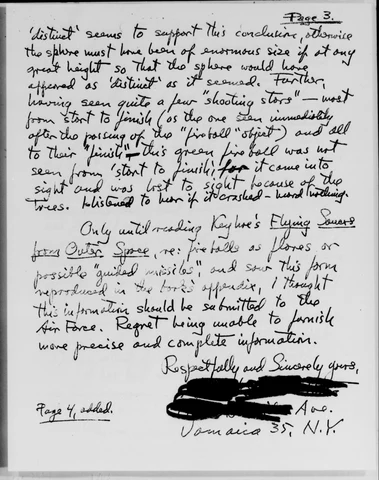 Page 3.
'distinct' seems to support this conclusion, otherwise
the sphere must have been of enormous size if at any
great height so that the sphere would have
appeared as 'distinct' as it seemed. Further,
having seen quite a few "shooting stars" — most
from start to finish (as the one seen immediately
after the passing of the "fireball" object) and all
to their "finish" — this green fireball was not
seen from 'start to finish, for it came into
sight and was lost to sight because of the
trees. I listened to hear if it crashed — heard nothing.
Only until reading Keyhoe's Flying Saucers
from Outer Space, re: fireballs as flares or
possible "guided missiles", and saw this form
reproduced in the book's appendix, I thought
this information should be submitted to the
Air Force. Regret being unable to furnish
more precise and complete information.
Respectfully and Sincerely yours,
Ave.
Page 4, added.
Jamaica 35, N.Y.